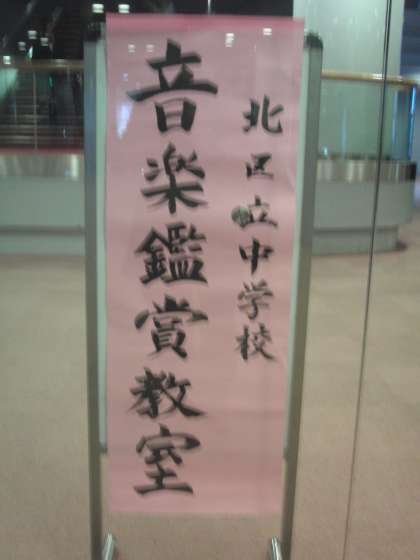 北区立中学校
音楽鑑賞教室